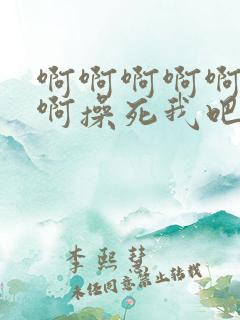 啊啊啊啊啊
啊操死我吧
李熙慧
未经同意禁止转载